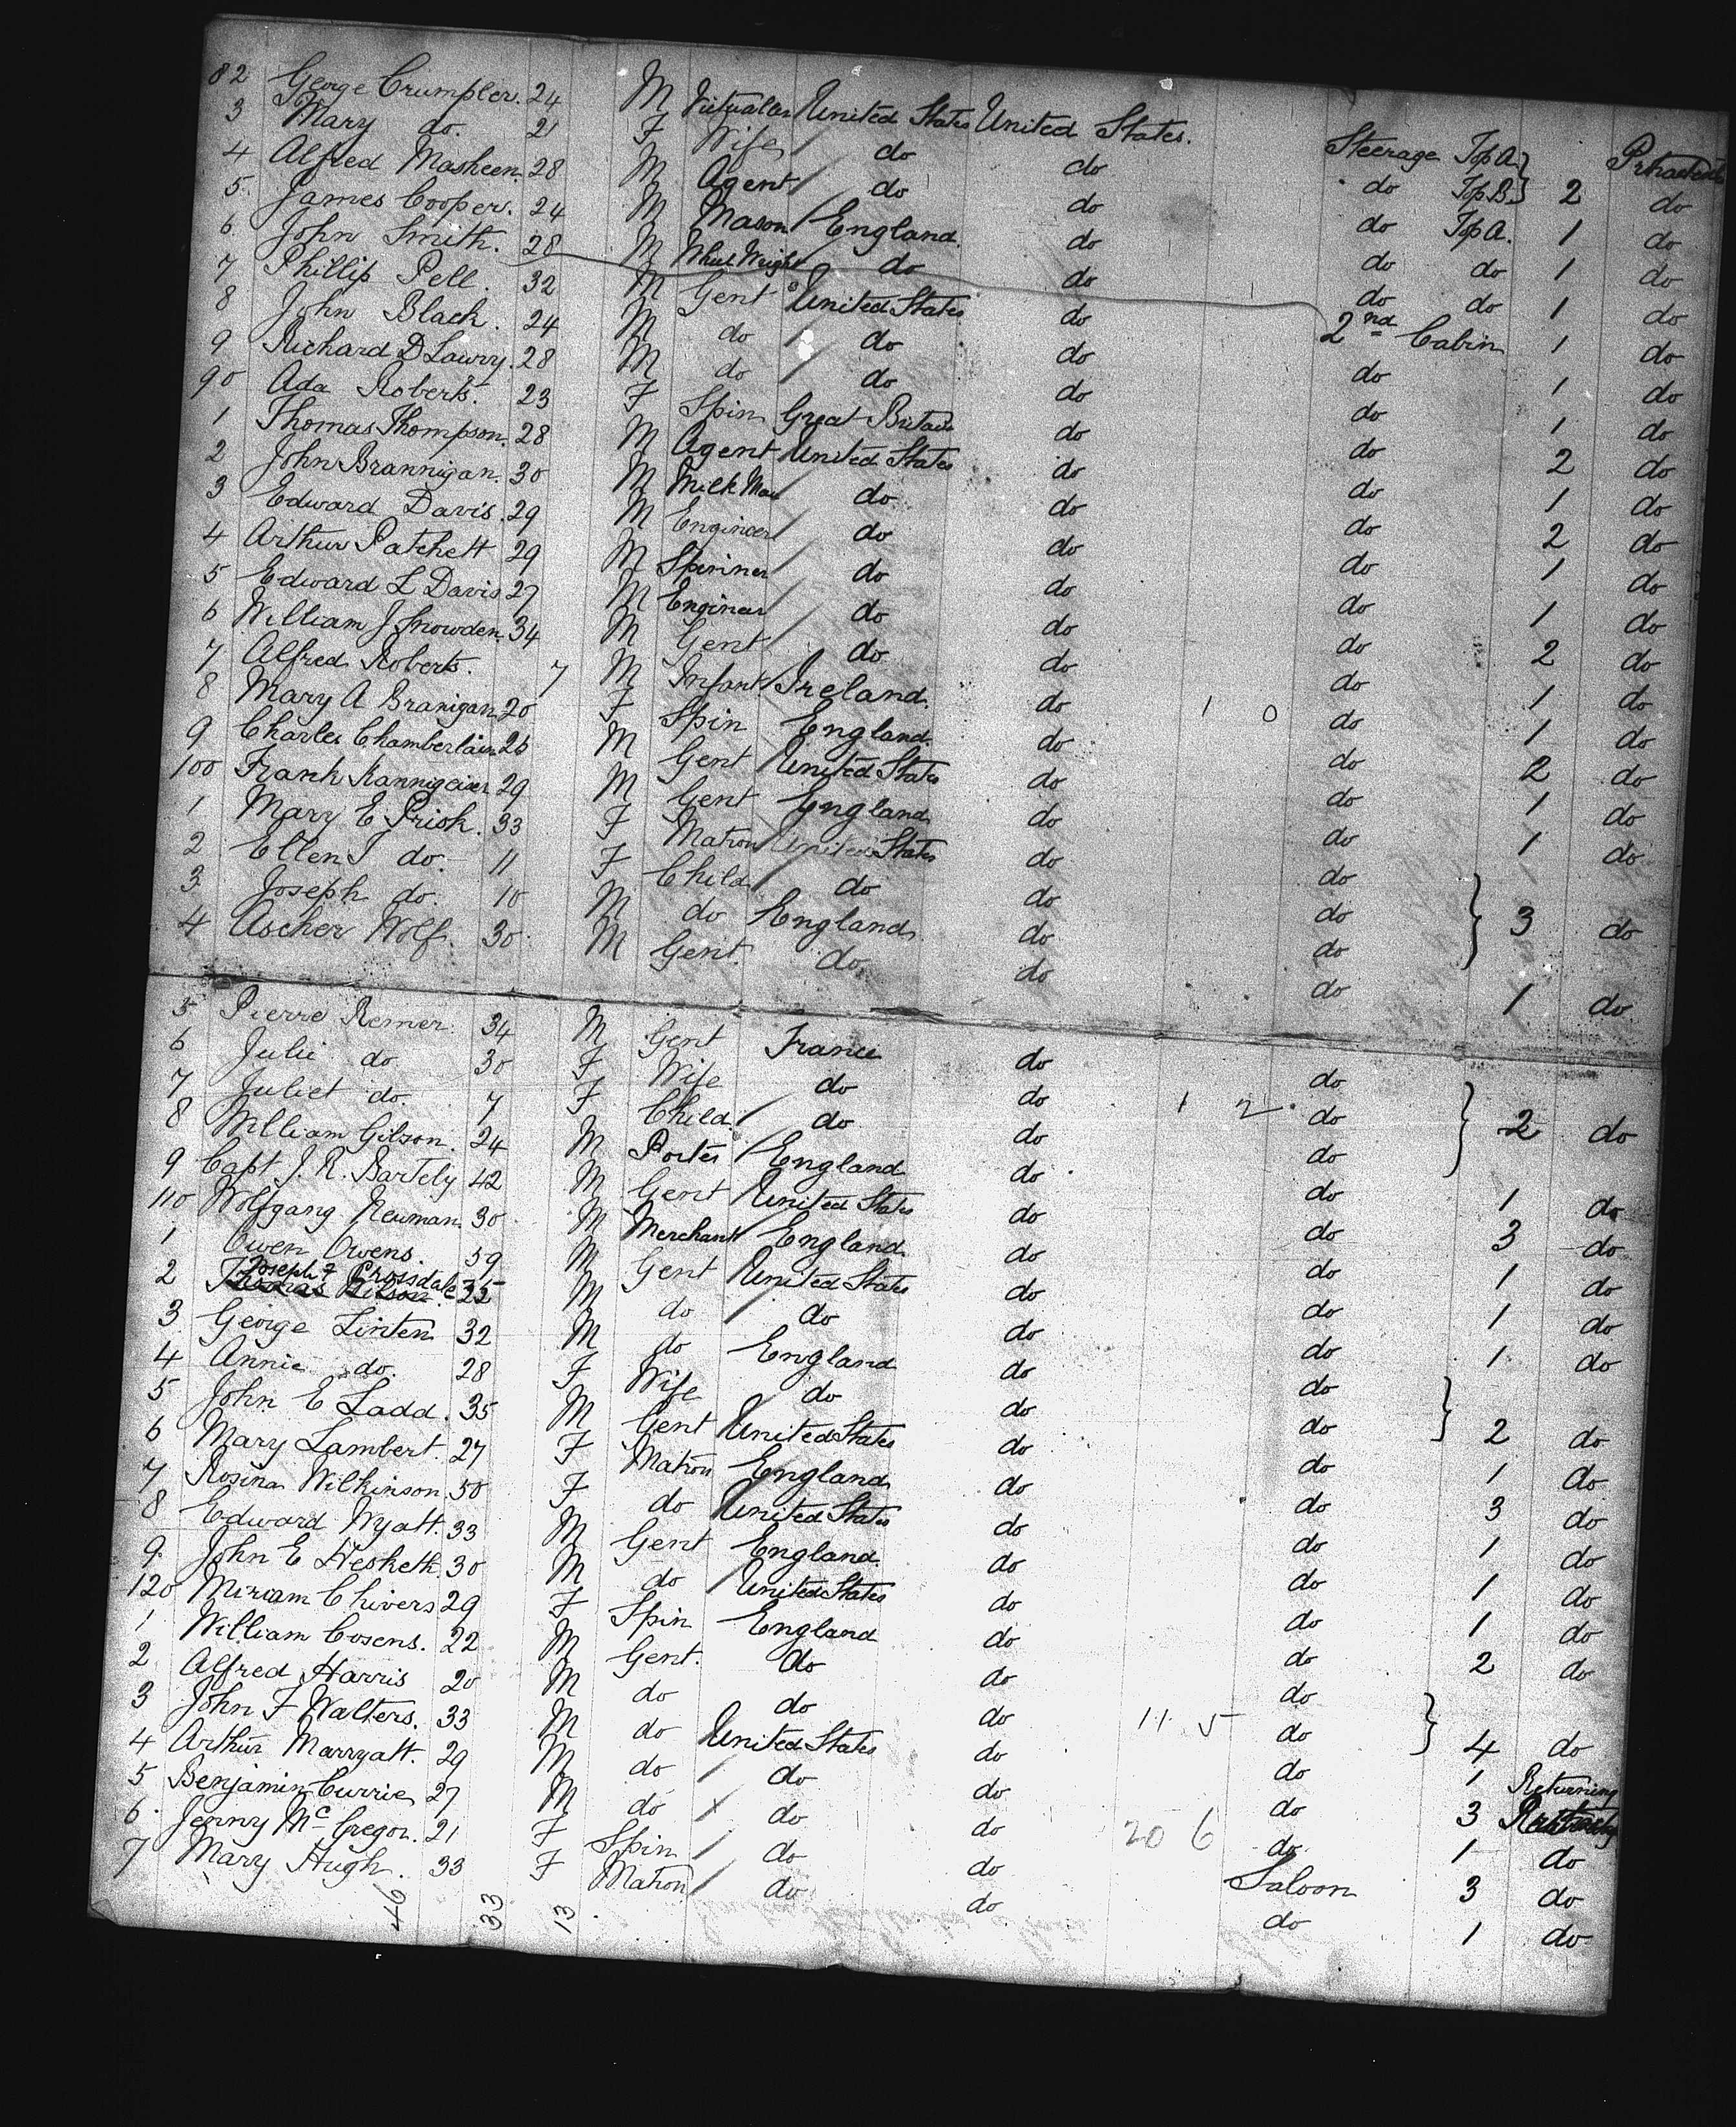 82 George Crumpler. 24 M Victualler United States United States. Steerage Top A. Protracted
3 Mary do. 21 F Wife do do do Top B. 2 do
4 Alfred Masheen. 28 M Agent do do do Top A. 1 do
5. James Cooper. 24 M Mason England. do do do 1 do
6 John Smith. 28 M Wheel Wright do do do do 1 do
7 Phillip Pell. 32 M Gent United States do 2nd Cabin 1 do
8 John Black. 24 M do do do do 1 do
9 Richard D Lowry. 28 M do do do do 1 do
90 Ada Roberts. 23 F Spin Great Britain do do 2 do
1 Thomas Thompson. 28 M Agent United States do do 1 do
2 John Brannigan. 30 M Milk Man do do do 2 do
3 Edward Davis. 29 M Engineer do do do 1 do
4 Arthur Patchett 29 M Spinner do do do 1 do
5 Edward L Davis 27 M Engineer do do do 2 do
6 William J Snowden. 34 M Gent do do do 1 do
7 Alfred Roberts. 7 M Infant Ireland. do 1 0 do 1 do
8 Mary A Branigan 20 F Spin England. do do 2 do
9 Charles Chamberlain 26 M Gent United States do do 1 do
100 Frank 29 M Gent England do do 1 do
1 Mary E Prish. 33 F Matron United States do do
2 Ellen J do. 11 F Child do do do 3 do
3 Joseph do. 10 M do England do do
4 Ascher Wolf. 30 M Gent. do do do 1 do
5 Pierre Remer. 34 M Gent France do do
6 Julie do 30 F Wife do do do 2 do
7 Juliet do. 7 F Child. do do 1 2 do
8 William Gilson. 24 M Porter England do do 1 do
9 Capt J. R. Bartely 42 M Gent United States do do 3 do
110 Wolfgang Neuman 30 M Merchant England do do 1 do
1 Owen Owens. 59 M Gent United States do do 1 do
2 Joseph F Crossdale 35 M do do do do 1 do
3 George Linten 32 M do England do do
4 Annie do. 28 F Wife do do do 2 do
5 John E Ladd. 35 M Gent United States do do 1 do
6 Mary Lambert. 27 F Matron England do do 3 do
7 Rosina Wilkinson 50 F do United States do do 1 do
8 Edward Wyatt. 33 M Gent England. do do 1 do
9. John E Hesketh. 30 M do United States do do 1 do
120 Miriam Chivers 29 F Spin England do do 2 do
1 William Cosens. 22 M Gent. do do do
2 Alfred Harris 20 M do do do do 4 do
3 John F Walters. 33 M do United States do 11 5 do 1 Returning
4 Arthur Marryatt. 29 M do do do do 3
5 Benjamin Currie 27 M do do do do 1 do
6. Jenny McGregor. 21 F Spin do do 20 6 Saloon 3 do
7 Mary Hugh. 33 F Matron do do do 1 do
46 33 13